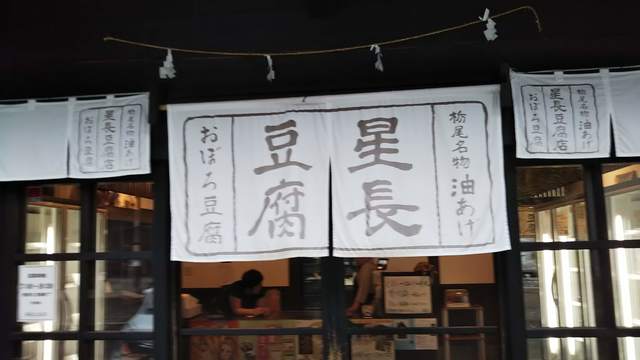 栃尾名物 油あげ
星長
豆腐
おぼろ豆腐
栃尾名物 油あげ
星長豆腐店
おぼろ豆腐
栃尾名物 油あげ
星長豆腐店
おぼろ豆腐